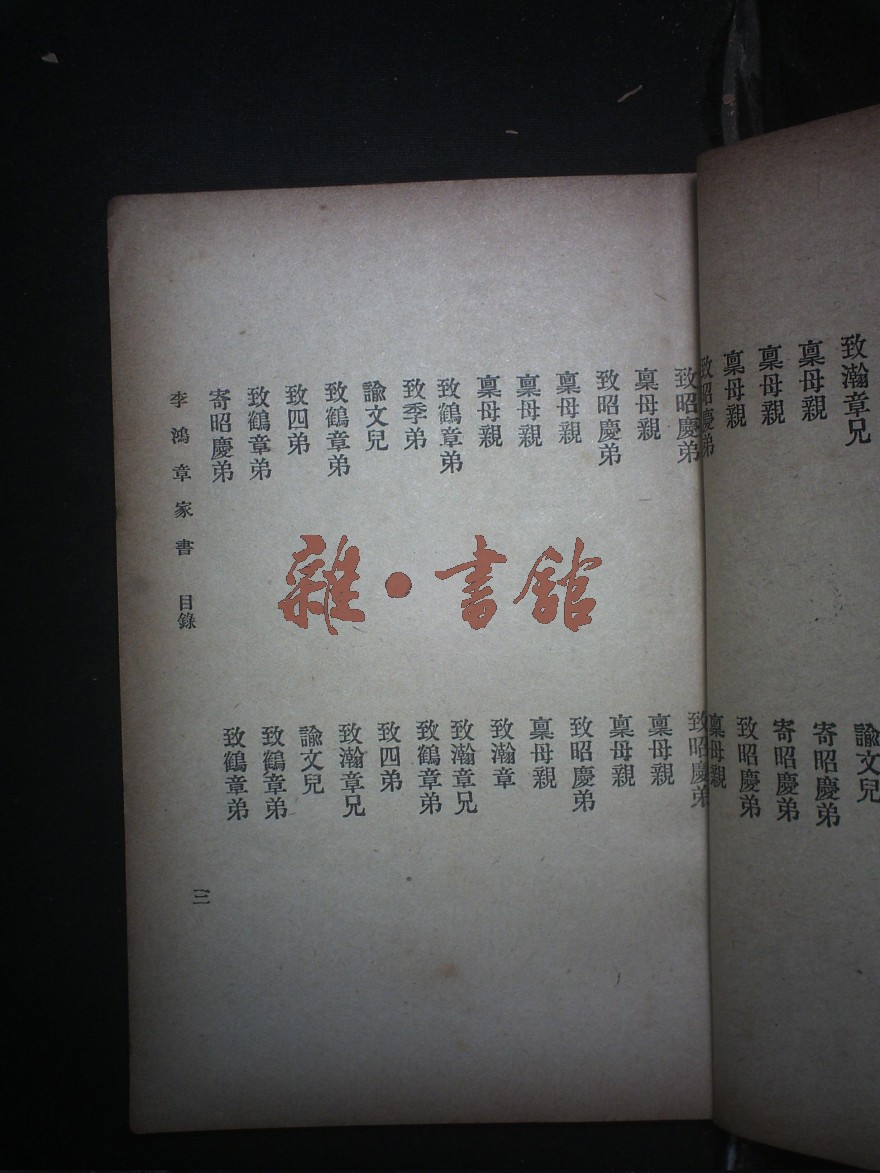 致瀚章兄
稟母親
稟母親
稟母親
致昭慶弟
諭文兒
寄昭慶弟
寄昭慶弟
致昭慶弟
稟母親
致昭慶弟
稟母親
致昭慶弟
稟母親
稟母親
稟母親
致鶴章弟
致季弟
諭文兒
致鶴章弟
致四弟
致鶴章弟
寄昭慶弟
致昭慶弟
稟母親
稟母親
致昭慶弟
稟母親
致瀚章
致瀚章兄
致鶴章弟
致四弟
致瀚章兄
諭文兒
致鶴章弟
致鶴章弟
李鴻章家書 目錄
三
雜·書館